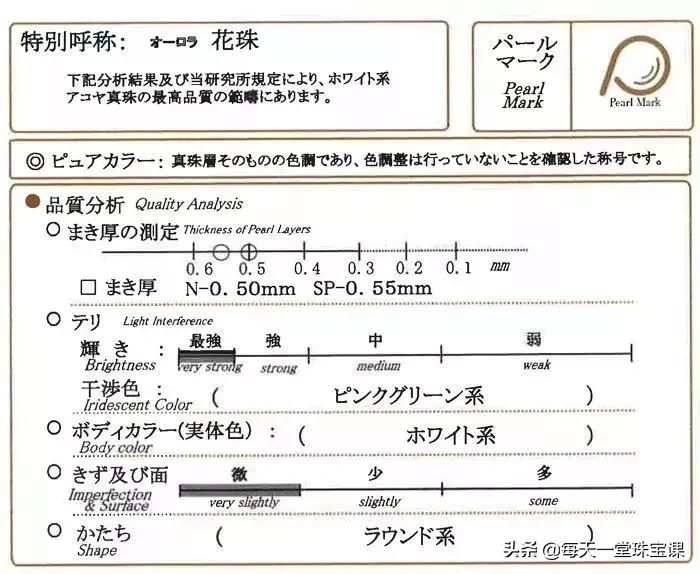 特別呼称： オーロラ 花珠
下記分析結果及び当研究所規定により、ホワイト系
アコヤ真珠の最高品質の範疇にあります。
パール
マーク
Pearl
Mark
Pearl Mark
◎ ピュアカラー： 真珠層そのものの色調であり、色調整は行っていないことを確認した称号です。
● 品質分析 Quality Analysis
○ まき厚の測定 Thickness of Pearl Layers
0.6 0.5 0.4 0.3 0.2 0.1 mm
□ まき厚 N-0.50mm SP-0.55mm
○ テリ Light Interference
最強 強 中 弱
輝き：
Brightness very strong strong medium weak
干渉色： ( ピンクグリーン系 )
Iridescent Color
○ ボディカラー(実体色)： ( ホワイト系 )
Body color
○ きず及び面 微 少 多
Imperfection
& Surface very slightly slightly some
○ かたち ( ラウンド系 )
Shape
头条 @每天一堂珠宝课